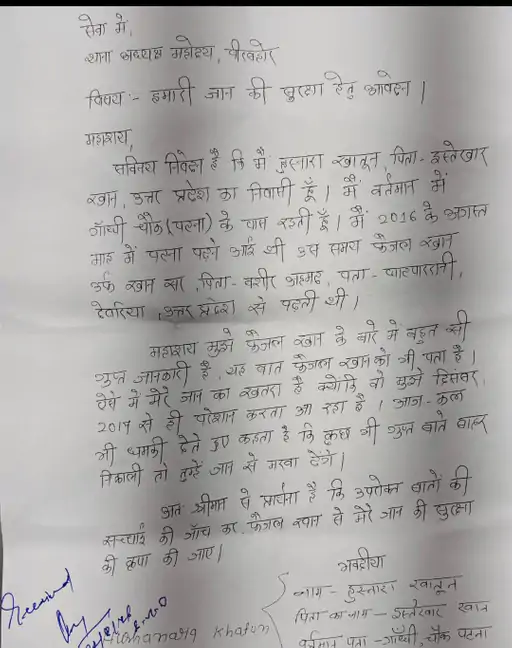 सेवा में,
थाना अध्यक्ष महोदय, पीरबहोर
विषय :- हमारी जान की सुरक्षा हेतु आवेदन |
महाशय,
सविनय निवेदन है कि मैं हुस्नारा खातून, पिता- इस्तेखार
खान, उत्तर प्रदेश का निवासी हूँ | मैं वर्तमान में
गाँधी चौक (पटना) के पास रहती हूँ | मैं 2016 के अगस्त
माह में पटना पढ़ने आई थी उस समय फैजल खान
उर्फ खान सर, पिता- बशीर अहमद, पता - भाटपाररानी,
देवरिया, उत्तर प्रदेश से पढ़ती थी |
महाशय मुझे फैजल खान के बारे में बहुत सी
गुप्त जानकारी है, यह बात फैजल खान को भी पता है |
ऐसे में मेरे जान का खतरा है क्योंकि वो मुझे दिसंबर,
2017 से ही परेशान करता आ रहा है | आज-कल
भी धमकी देते हुए कहता है कि कुछ भी गुप्त बाते बाहर
निकाली तो तुम्हे जान से मरवा देंगे |
अतः श्रीमान से प्रार्थना है कि उपरोक्त बातों की
सच्चाई की जाँच कर फैजल खान से मेरे जान की सुरक्षा
की कृपा की जाए |
भवदीया
नाम - हुस्नारा खातून
पिता का नाम - इस्तेखार खान
वर्तमान पता - गाँधी चौक पटना
Received
Khatun